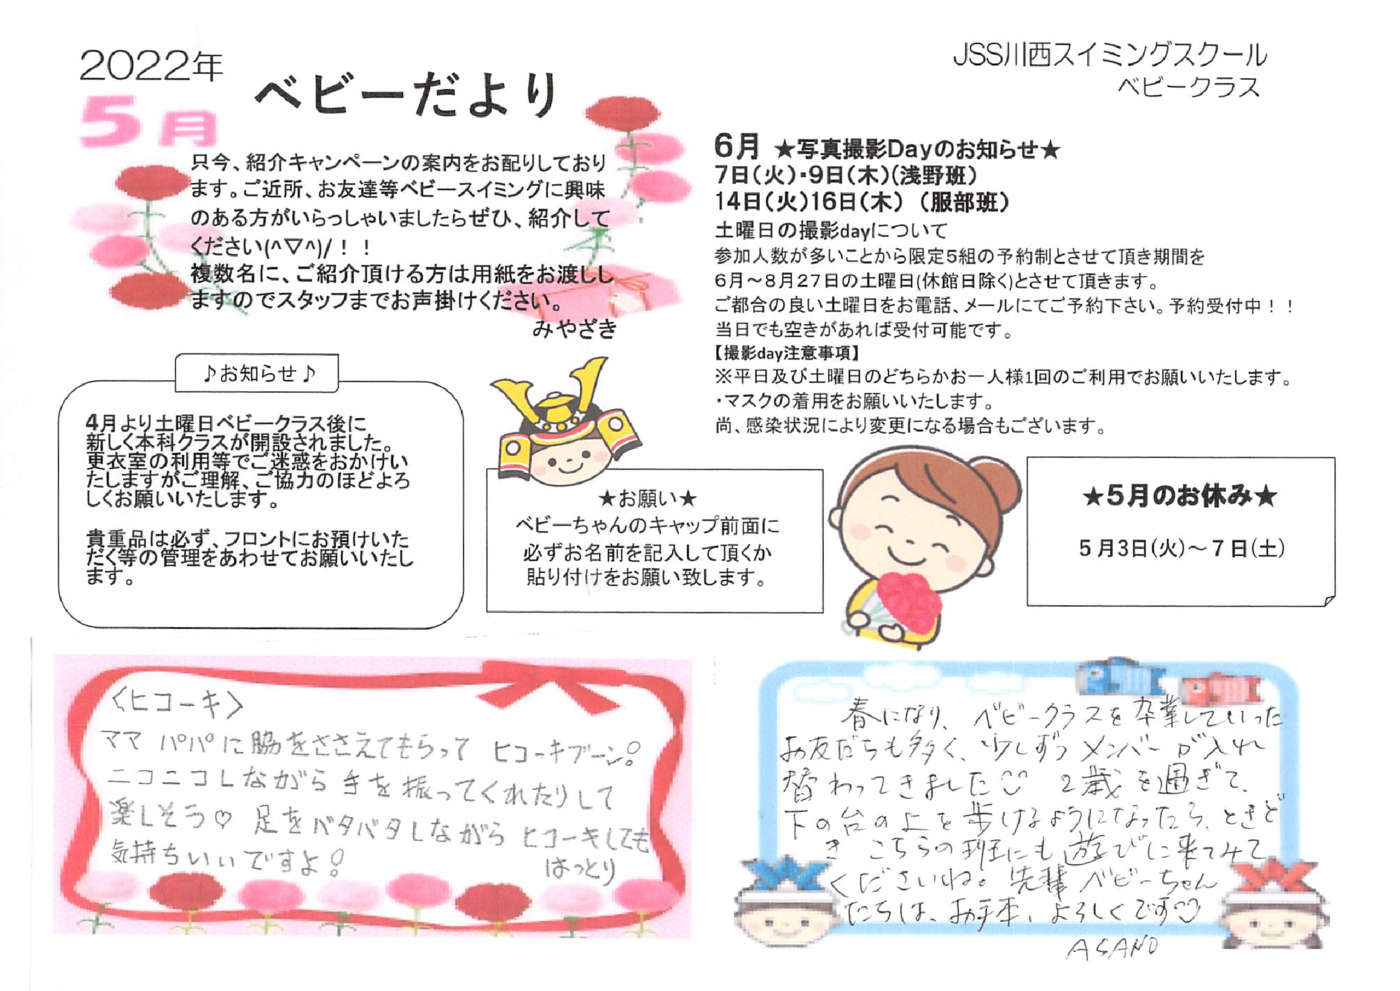 2022年
5月
ベビーだより
JSS川西スイミングスクール
ベビークラス
只今、紹介キャンペーンの案内をお配りしており
ます。ご近所、お友達等ベビースイミングに興味
のある方がいらっしゃいましたらぜひ、紹介して
ください(^▽^)/！！
複数名に、ご紹介頂ける方は用紙をお渡しし
ますのでスタッフまでお声掛けください。
みやざき
6月 ★写真撮影Dayのお知らせ★
7日(火)・9日(木)(浅野班)
14日(火)16日(木) (服部班)
土曜日の撮影dayについて
参加人数が多いことから限定5組の予約制とさせて頂き期間を
6月～8月27日の土曜日(休館日除く)とさせて頂きます。
ご都合の良い土曜日をお電話、メールにてご予約下さい。予約受付中！！
当日でも空きがあれば受付可能です。
【撮影day注意事項】
※平日及び土曜日のどちらかお一人様1回のご利用でお願いいたします。
・マスクの着用をお願いいたします。
尚、感染状況により変更になる場合もございます。
♪お知らせ♪
4月より土曜日ベビークラス後に
新しく本科クラスが開設されました。
更衣室の利用等でご迷惑をおかけい
たしますがご理解、ご協力のほどよろ
しくお願いいたします。
貴重品は必ず、フロントにお預けいた
だく等の管理をあわせてお願いいたし
ます。
★お願い★
ベビーちゃんのキャップ前面に
必ずお名前を記入して頂くか
貼り付けをお願い致します。
★5月のお休み★
5月3日(火)～7日(土)
〈ヒコーキ〉
ママ パパに脇をささえてもらって ヒコーキブーン!
ニコニコしながら手を振ってくれたりして
楽しそう♡ 足をバタバタしながら ヒコーキしても
気持ちいいですよ!
はっとり
春になり、ベビークラスを卒業していった
お友だちも多く、少しずつメンバーが入れ
替わってきました 2歳を過ぎて、
下の台の上を歩けるようになったら、ときど
き こちらの班にも遊びに来てみて
くださいね。先輩ベビーちゃん
たちは、お手本、よろしくです♡
ASANO